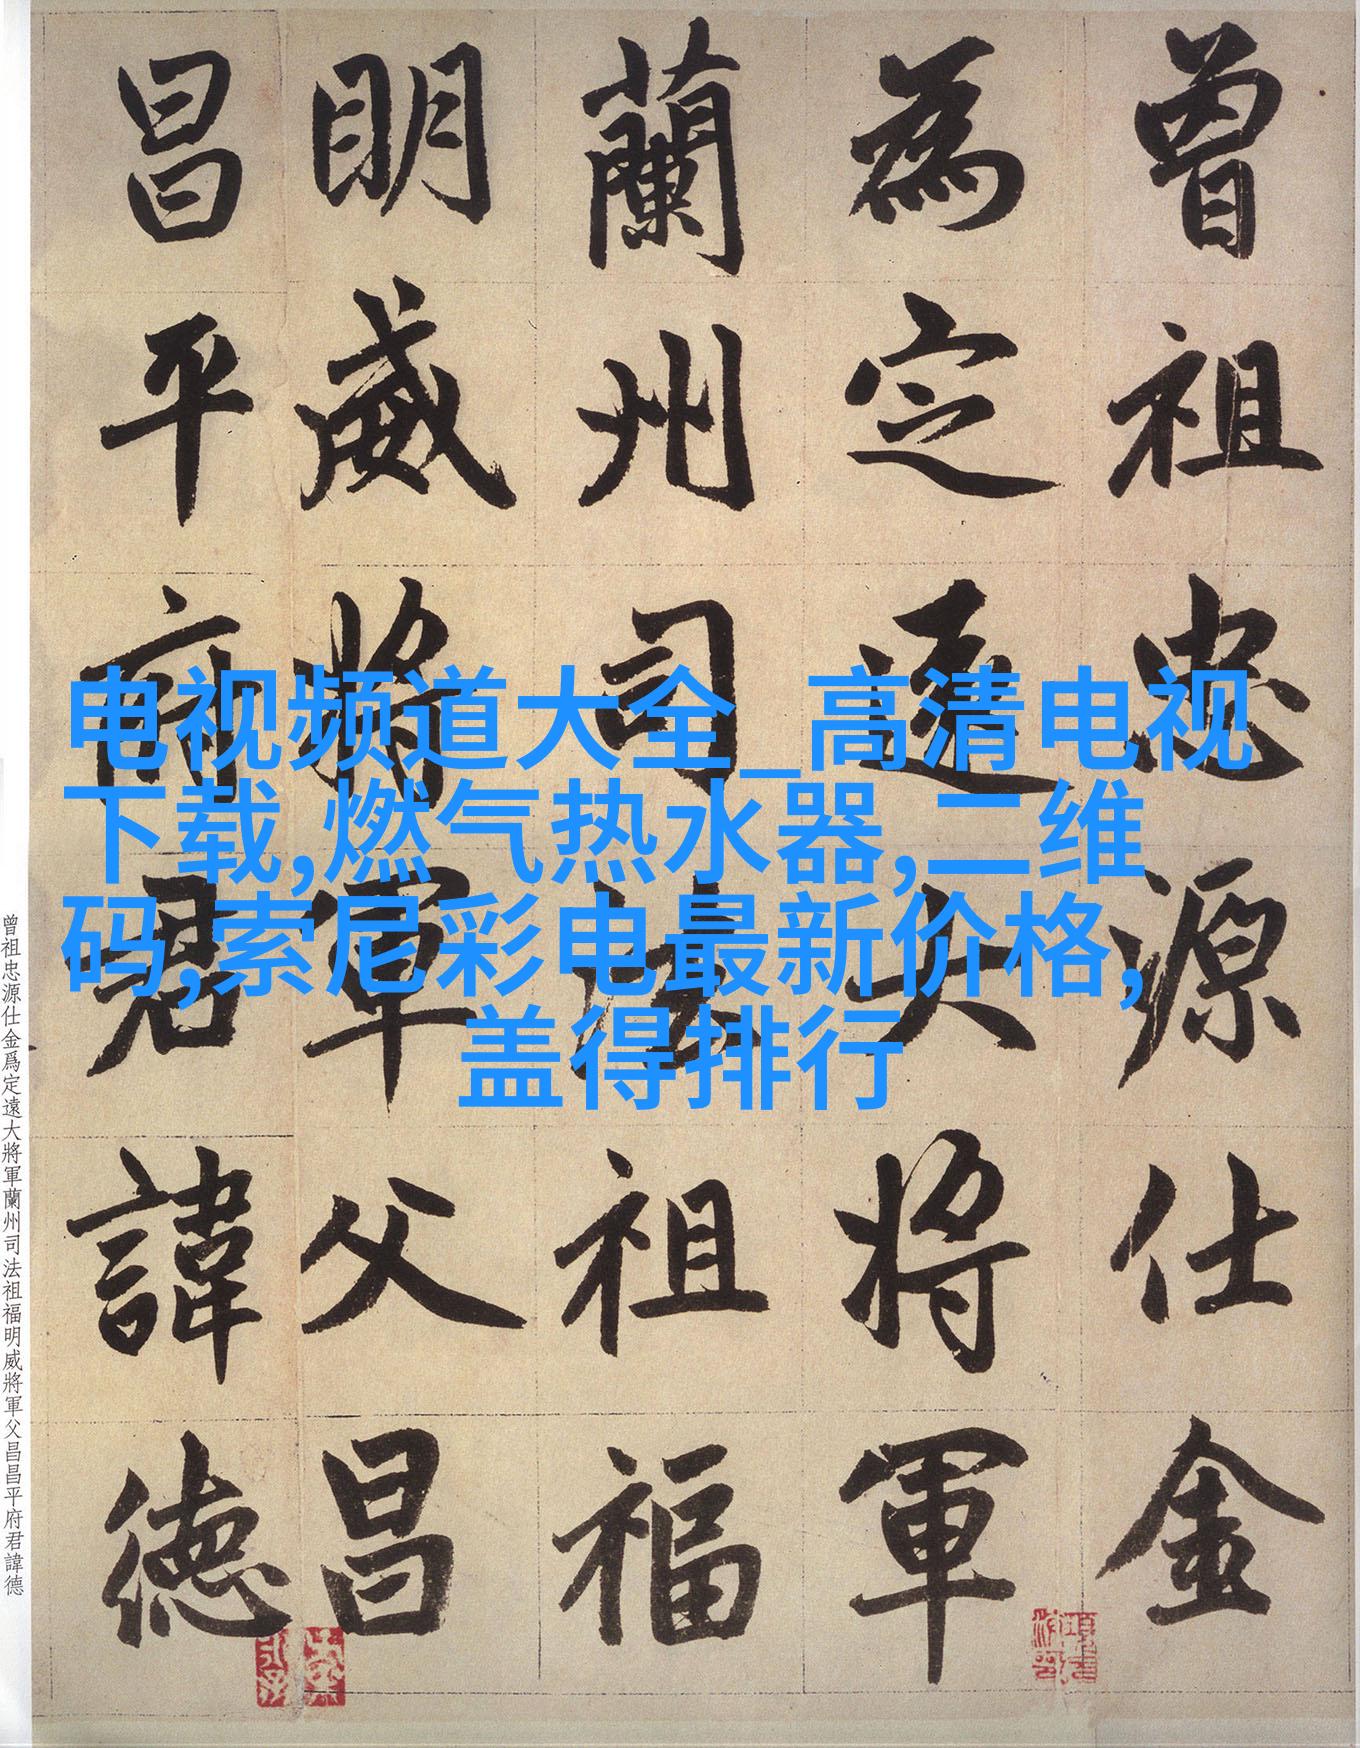 曾祖忠源仕金
為定遠大將軍
蘭州司法祖福
明威將軍父昌
昌平府君諱德
电视频道大全_高清电视
下载,燃气热水器,二维
码,索尼彩电最新价格,
盖得排行
曾祖忠源仕金爲定遠大將軍蘭州司法祖福明威將軍父昌昌平府君諱德